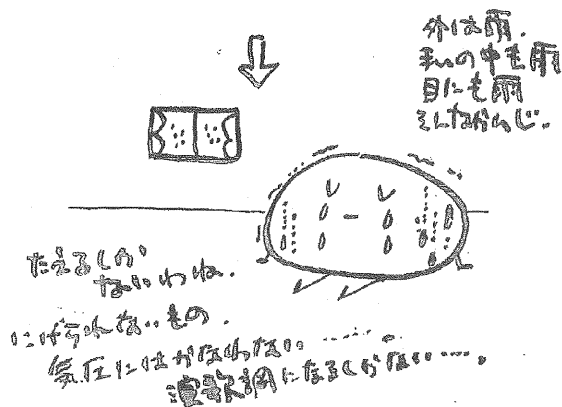 外は雨.
私の中も雨
目にも雨
そんなかんじ.
たえるしか
ないわね.
にげられないもの.
気圧にはかなわない……….
演歌調になるしかない…..